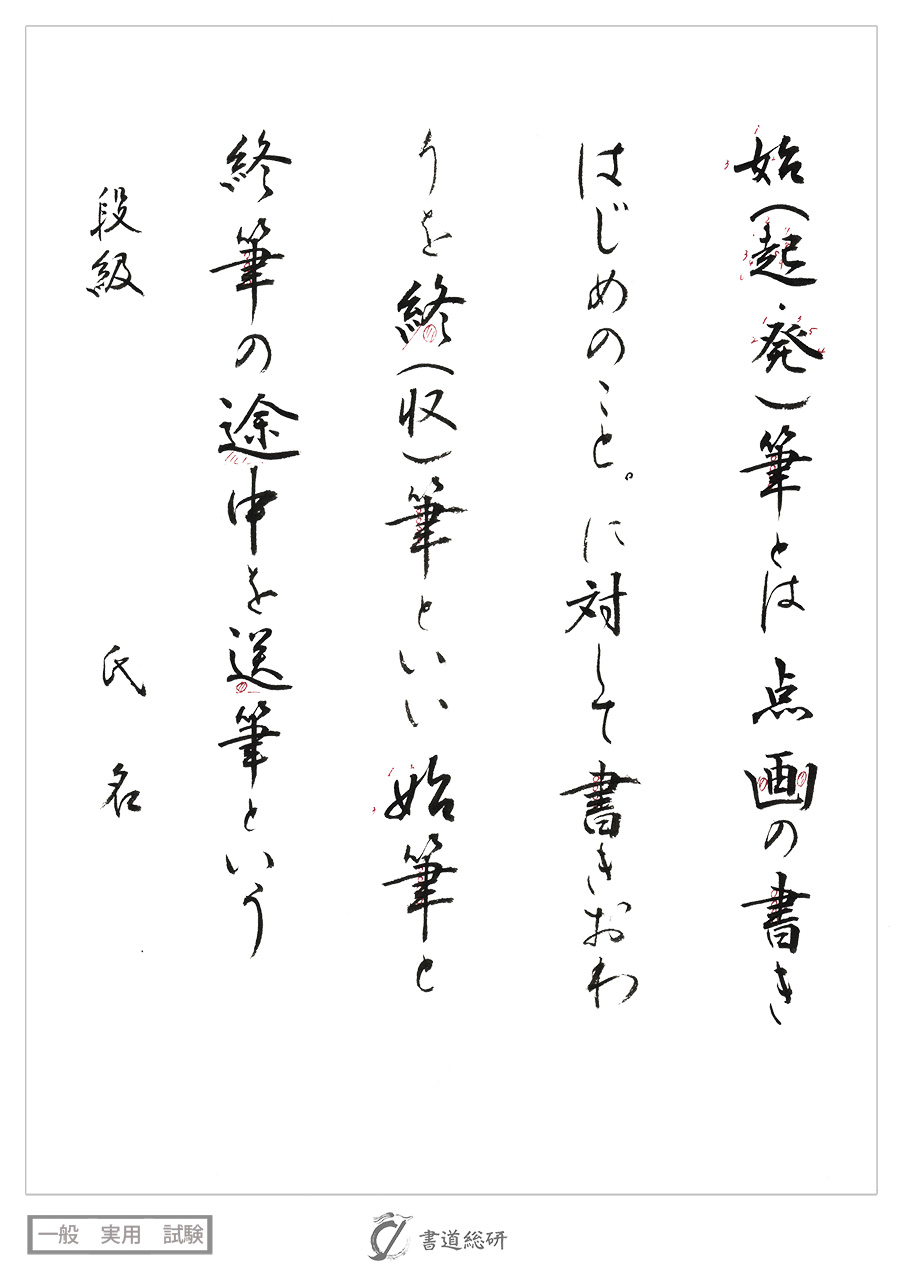 始(起・発)筆とは点画の書き
はじめのこと。に対して書きおわ
りを終(収)筆といい始筆と
終筆の途中を送筆という
段級 氏名
一般 実用 試験
書道総研